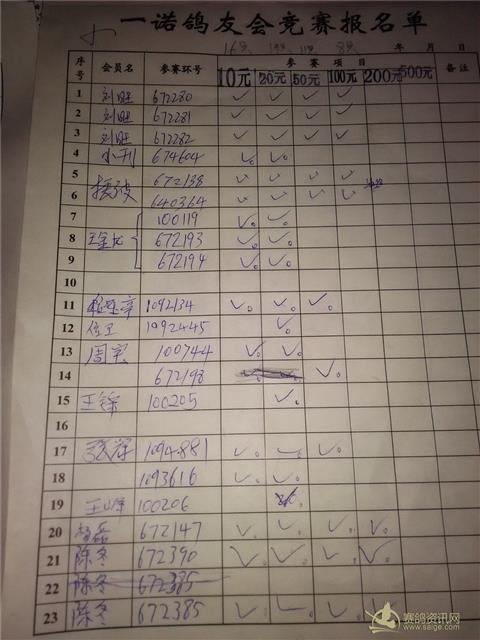 一诺鸽友会竞赛报名单
年 月 日
序号 会员名 参赛环号 参赛项目 备注
10元 20元 50元 100元 200元 500元
1 刘旺 672280 ✓ ✓ ✓ ✓
2 刘旺 672281 ✓ ✓ ✓ ✓
3 刘旺 672282 ✓ ✓ ✓ ✓
4 小刊 674604 ✓ ✓
5 672138 ✓ ✓ ✓ ✓
6 640364 ✓ ✓ ✓ ✓
7 100119 ✓ ✓
8 672193 ✓ ✓
9 672194 ✓ ✓
10
11 1092134 ✓ ✓ ✓
12 1092445 ✓
13 周寅 100744 ✓ ✓
14 672198 ✓
15 王锦 100205 ✓
17 张辉 1094881 ✓ ✓ ✓
18 1093616 ✓ ✓
19 王山峰 100206
20 杨磊 672147 ✓ ✓ ✓ ✓
21 陈冬 672390 ✓ ✓ ✓ ✓
22 陈冬 672385
23 陈冬 672385 ✓ ✓ ✓ ✓
赛鸽资讯网
www.saige.com